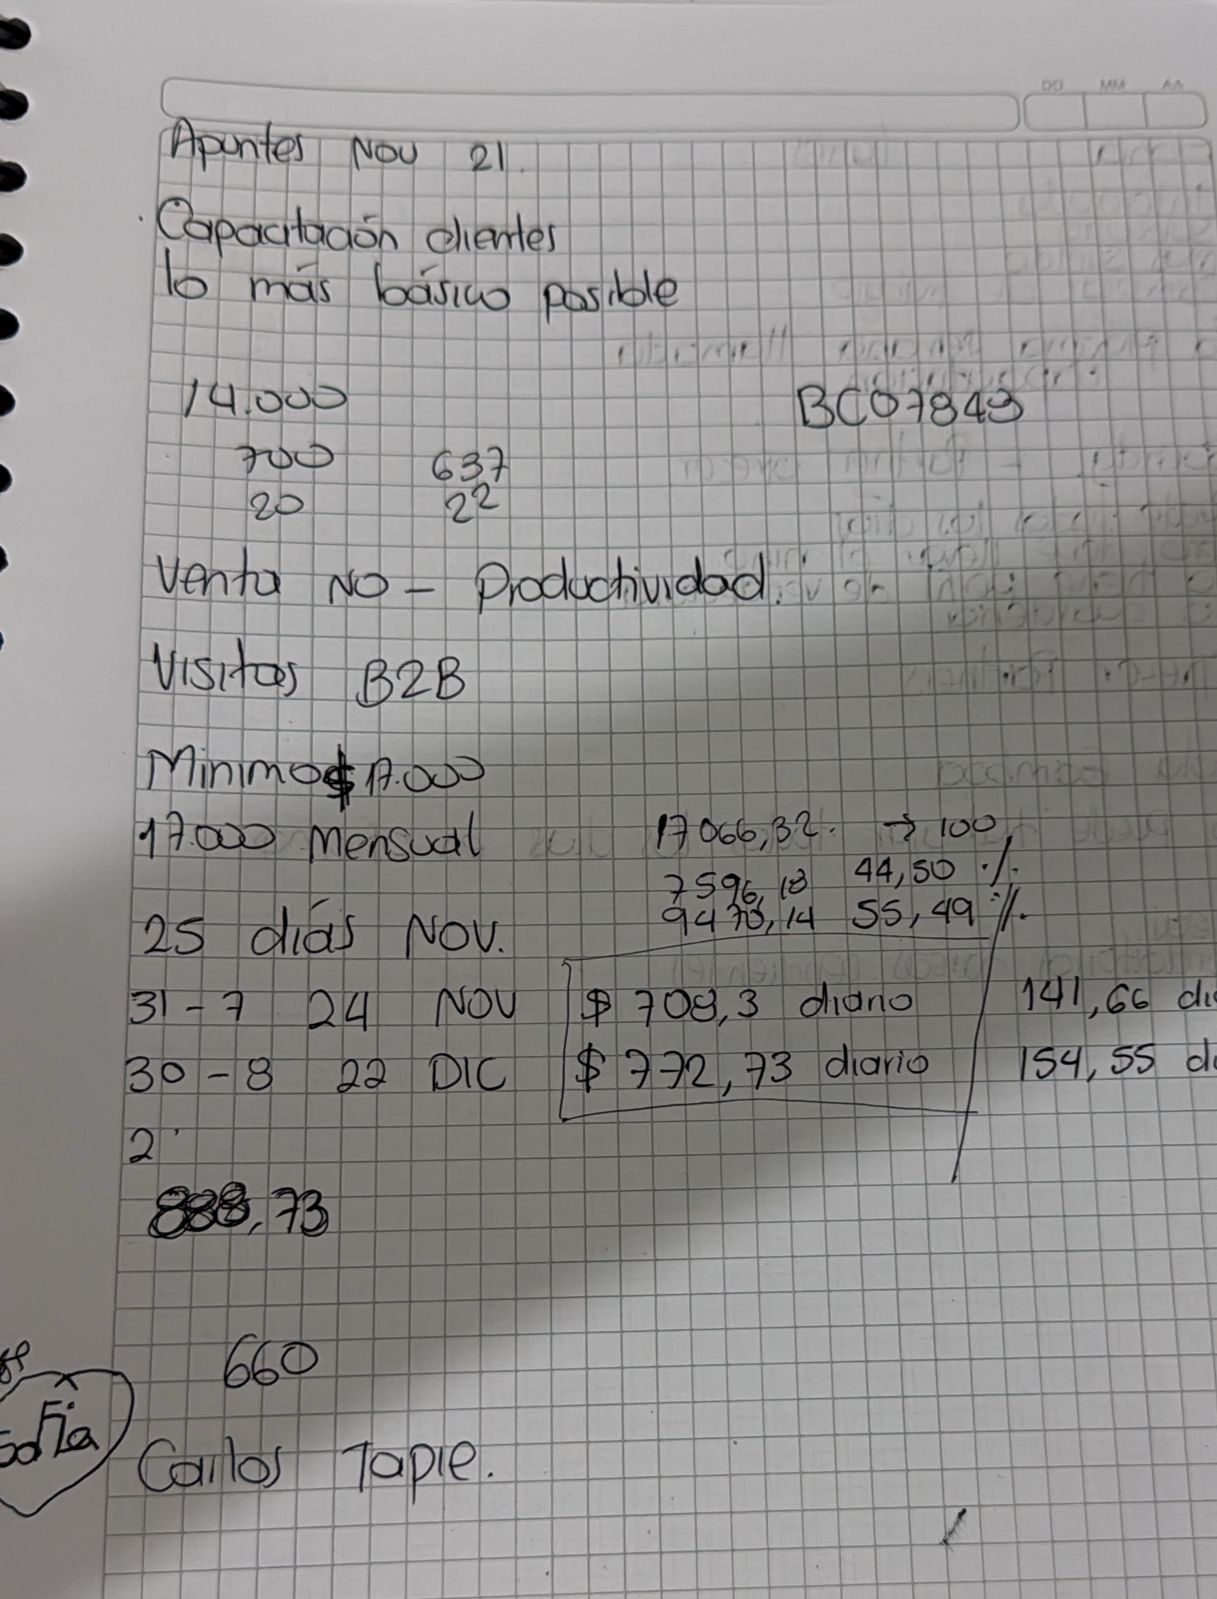 DD MM AA
Apuntes Nov 21.
Capacitación clientes
lo más básico posible
14.000 BC07843
700 637
20 22
Venta NO - Productividad.
Visitas B2B
Minimo $ 17.000
17.000 Mensual 17066,32. → 100
7596,18 44,50 %.
25 días NOV. 9470,14 55,49 %.
31-7 24 NOV $ 708,3 diario 141,66 di
30-8 22 DIC $ 772,73 diario 154,55 di
2
888,73
660
Sofia
Carlos Tapie.